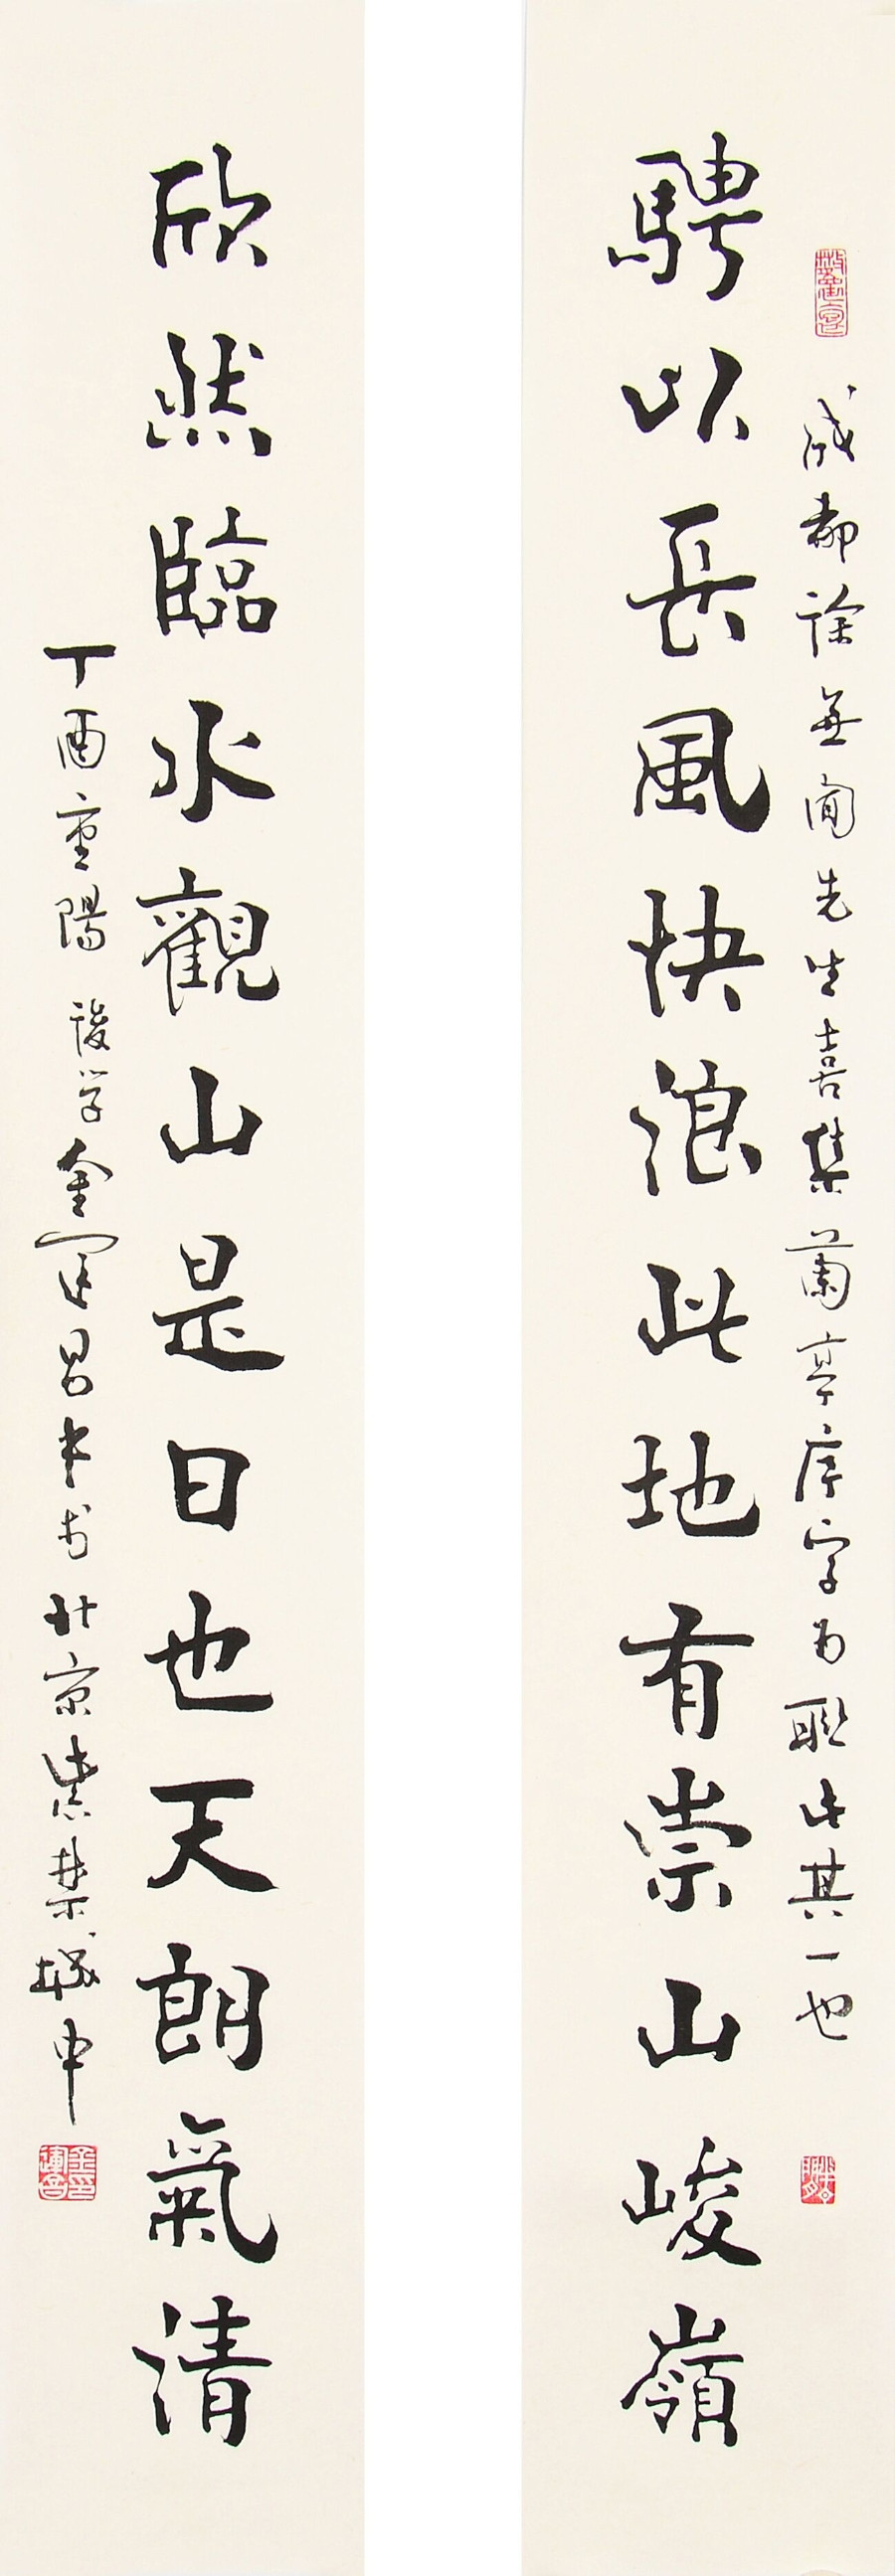 成都徐無聞先生喜集蘭亭序字為聯此其一也
騁以長風快浪此地有崇山峻嶺
欣然臨水觀山是日也天朗氣清
丁酉重陽 後學金運昌書於北京紫禁城中
金運昌印